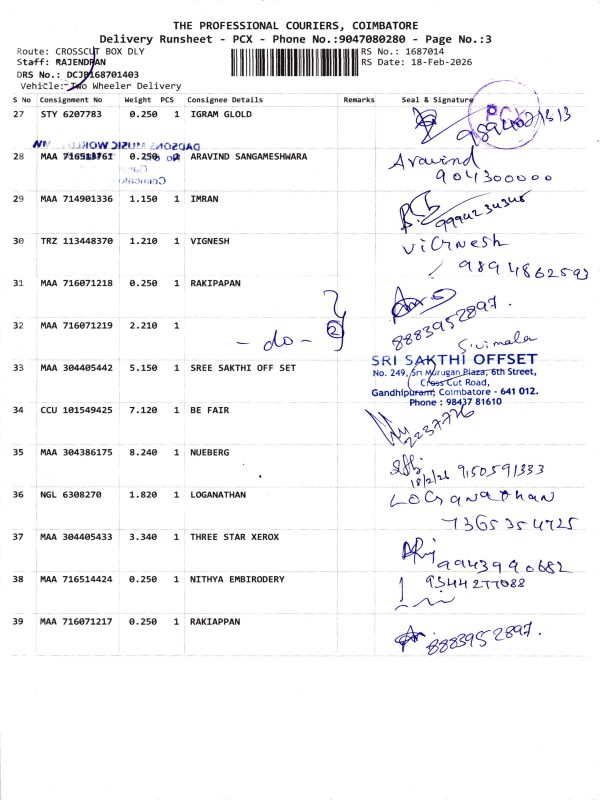 THE PROFESSIONAL COURIERS, COIMBATORE
Delivery Runsheet - PCX - Phone No.:9047080280 - Page No.:3
Route: CROSSCUT BOX DLY
RS No.: 1687014
Staff: RAJENDRAN
RS Date: 18-Feb-2026
DRS No.: DCJB168701403
Vehicle: Two Wheeler Delivery
S No Consignment No Weight PCS Consignee Details Remarks Seal & Signature
PCX
27 STY 6207783 0.250 1 IGRAM GLOLD
DADSONS MUSIC WORLD
28 MAA 716513761 0.250 ARAVIND SANGAMESHWARA Aravind
904300000
29 MAA 714901336 1.150 1 IMRAN
30 TRZ 113448370 1.210 1 VIGNESH ViGnesh
9894862593
31 MAA 716071218 0.250 1 RAKIPAPAN
8883952897.
32 MAA 716071219 2.210 1 - do - 2
33 MAA 304405442 5.150 1 SREE SAKTHI OFF SET
SRI SAKTHI OFFSET
No. 249, Sri Murugan Plaza, 6th Street,
Cross Cut Road,
Gandhipuram, Coimbatore - 641 012.
Phone : 98437 81610
34 CCU 101549425 7.120 1 BE FAIR
2237776
35 MAA 304386175 8.240 1 NUEBERG
18/2/26 9150591333
36 NGL 6308270 1.820 1 LOGANATHAN LOGanathan
7365354725
37 MAA 304405433 3.340 1 THREE STAR XEROX
9943990682
38 MAA 716514424 0.250 1 NITHYA EMBIRODERY 9344277088
39 MAA 716071217 0.250 1 RAKIAPPAN 8883952897.